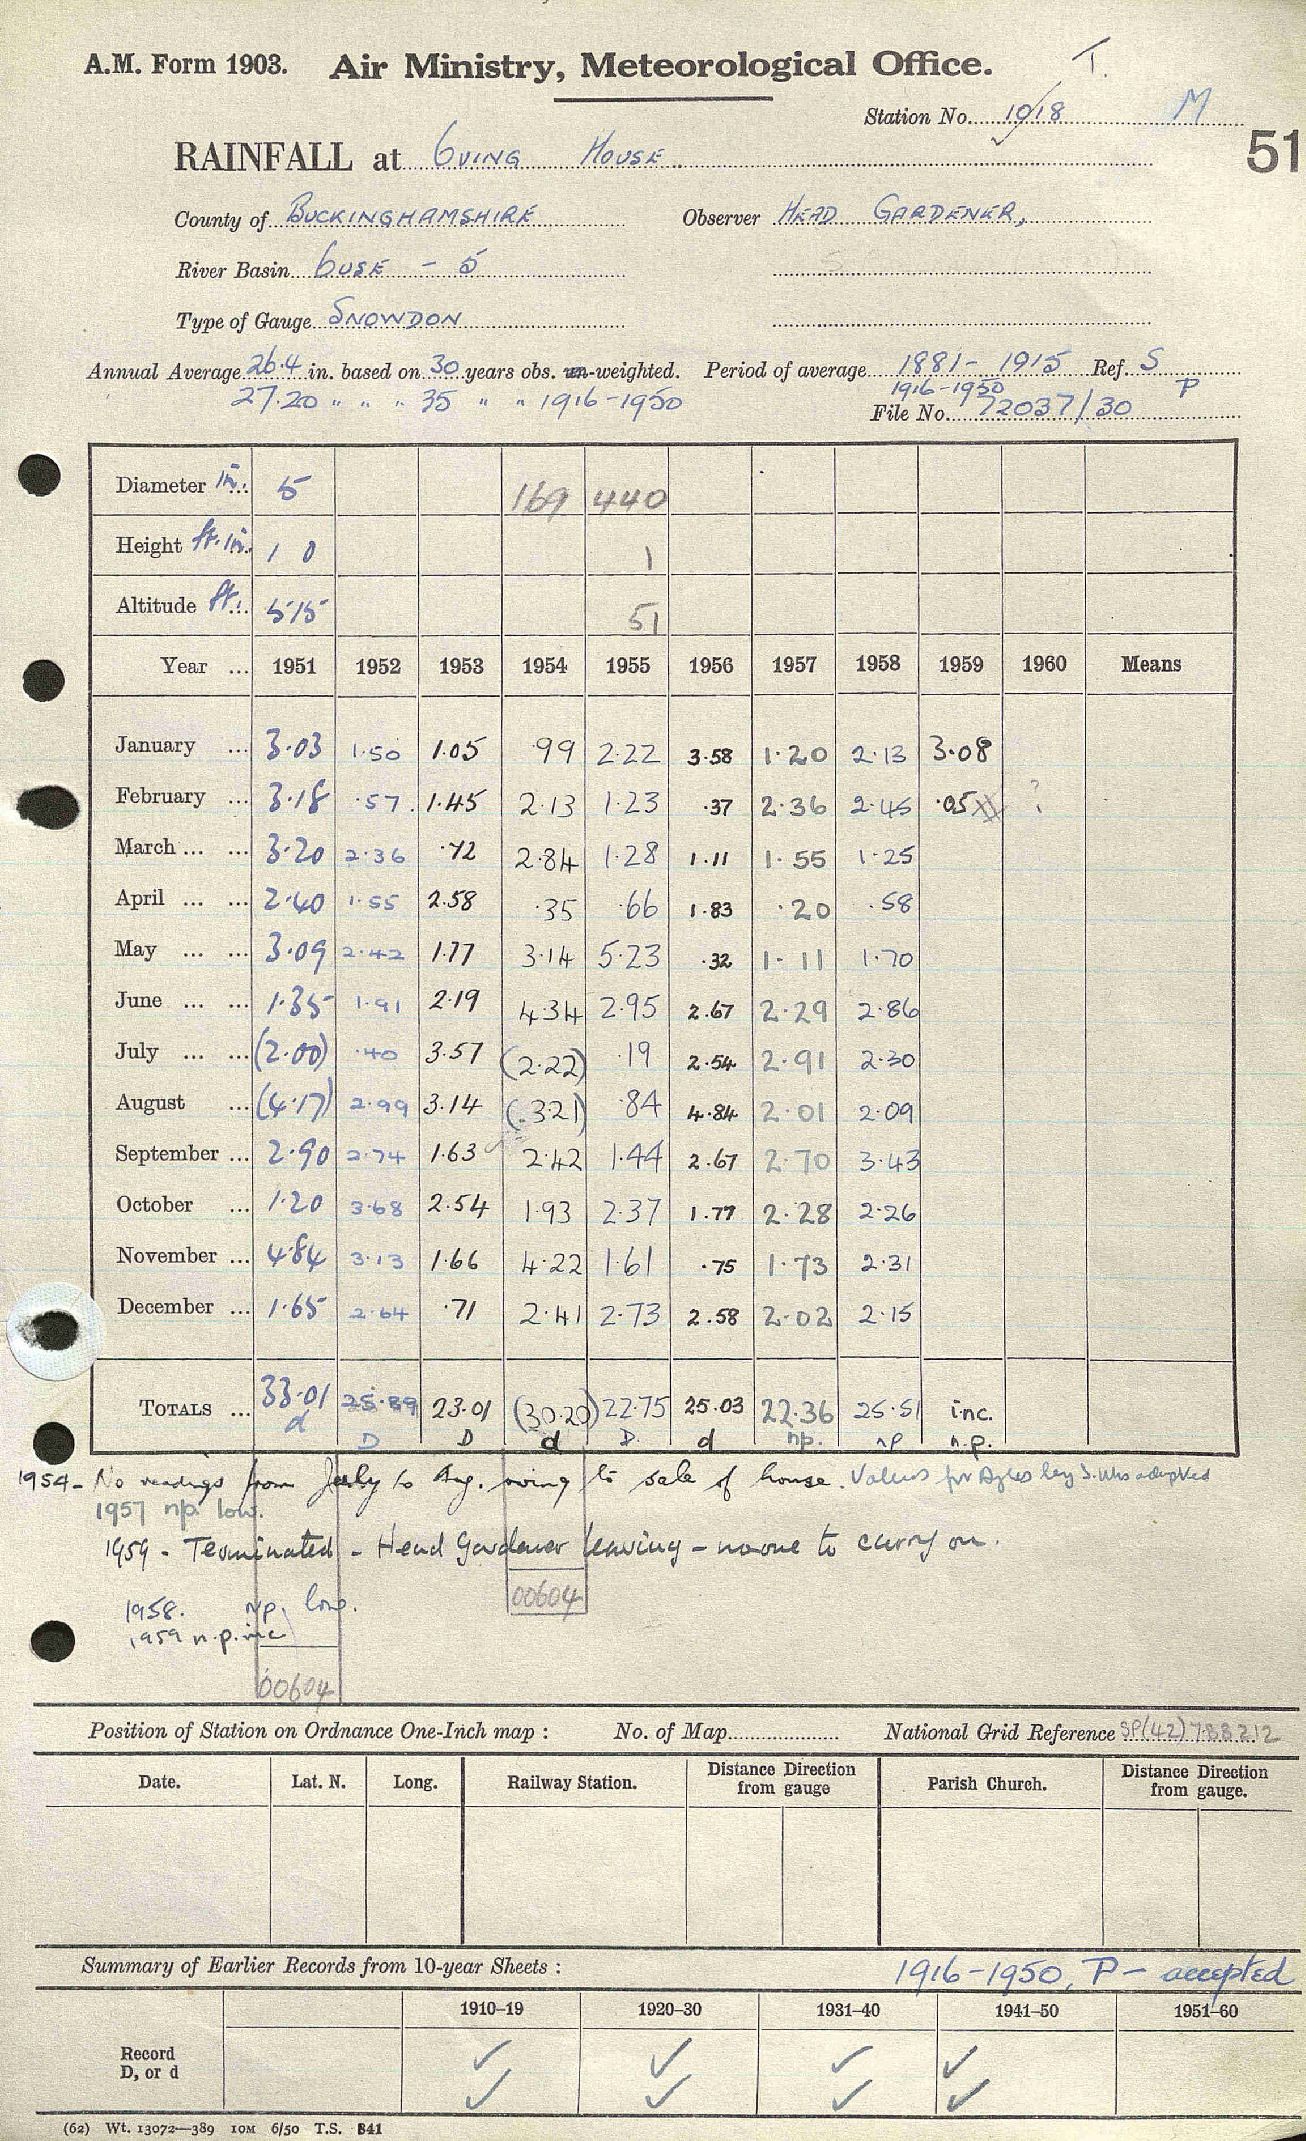 A.M. Form 1903. Air Ministry, Meteorological Office. T.
Station No. 1918 M
RAINFALL at Oving House 51
County of Buckinghamshire Observer Head Gardener,
River Basin Ouse - 5
Type of Gauge Snowdon
Annual Average 26.4 in. based on 30 years obs. un-weighted. Period of average 1881 - 1915 Ref. S
27.20 " " " 35 " " 1916-1950 1916-1950 P
File No. 72037/30
Diameter in. 5 169 440
Height ft. in. 1 0 1
Altitude ft. 515 51
Year ... 1951 1952 1953 1954 1955 1956 1957 1958 1959 1960 Means
January ... 3.03 1.50 1.05 .99 2.22 3.58 1.20 2.13 3.08
February ... 3.18 .57 1.45 2.13 1.23 .37 2.36 2.45 .05 ?
March ... ... 3.20 2.36 .72 2.84 1.28 1.11 1.55 1.25
April ... ... 2.40 1.55 2.58 .35 .66 1.83 .20 .58
May ... ... 3.09 2.42 1.77 3.14 5.23 .32 1.11 1.70
June ... ... 1.35 1.91 2.19 4.34 2.95 2.67 2.29 2.86
July ... ... (2.00) .40 3.57 (2.22) .19 2.54 2.91 2.30
August ... (4.17) 2.99 3.14 (3.21) .84 4.84 2.01 2.09
September ... 2.90 2.74 1.63 2.42 1.44 2.67 2.70 3.43
October ... 1.20 3.68 2.54 1.93 2.37 1.77 2.28 2.26
November ... 4.84 3.13 1.66 4.22 1.61 .75 1.73 2.31
December ... 1.65 2.64 .71 2.41 2.73 2.58 2.02 2.15
Totals ... 33.01 25.89 23.01 (30.20) 22.75 25.03 22.36 25.51 inc.
d D D d D d np. np n.p.
1954 - No readings from July to Aug. owing to sale of house. Values for Aylesbury S. Wks adopted
1957 np. low.
1959 - Terminated - Head Gardener leaving - no one to carry on.
00604
1958. np. low.
1959 n.p. inc
00604
Position of Station on Ordnance One-Inch map : No. of Map National Grid Reference SP(42) 788212
Date. Lat. N. Long. Railway Station. Distance Direction from gauge Parish Church. Distance Direction from gauge.
Summary of Earlier Records from 10-year Sheets : 1916-1950, P - accepted
1910–19 1920–30 1931–40 1941–50 1951–60
Record ✓ ✓ ✓ ✓
D, or d ✓ ✓ ✓ ✓
(62) Wt. 13072—389 10M 6/50 T.S. 841